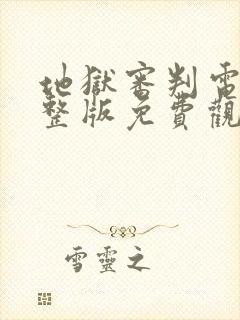 地獄審判電
整版免費觀
雪靈之